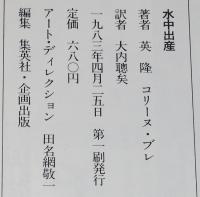 水中出産
著者 英 隆 コリーヌ・ブレ
訳者 大内聰矣
一九八三年四月二五日 第一刷発行
定価 六八〇円
アート・ディレクション 田名網敬一
編集 集英社・企画出版